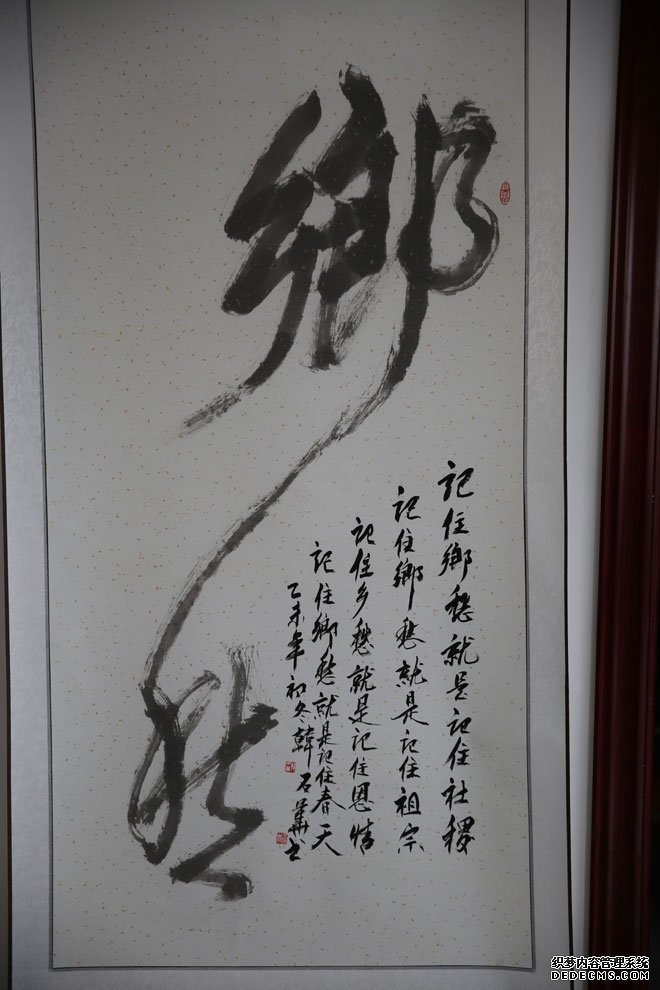 鄉愁
記住鄉愁就是記住社稷
記住鄉愁就是記住祖宗
記住乡愁就是記住恩情
記住鄉愁就是記住春天
乙未年初冬韓石華书
织梦内容管理系统
DEDECMS.COM